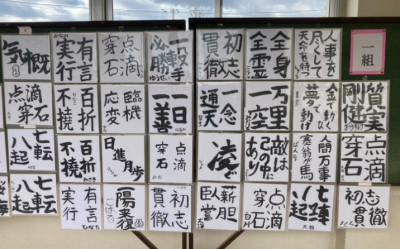 一組
人事を
尽くして
天命を待つ
全身
全霊
初志
貫徹
点滴
穿石
有言
実行
気概
質実
剛健
万里
一空
一念
通天
一日
一善
臨機
応変
百折
不撓
点滴
穿石
点滴
穿石
人間万事
塞翁が馬
敵は
己の中に
点滴
穿石
日進月歩
百折
不撓
七転
八起
初志
貫徹
七転
八起
点滴
穿石
薪胆
臥嘗
初志
貫徹
有言
実行
七転
八起